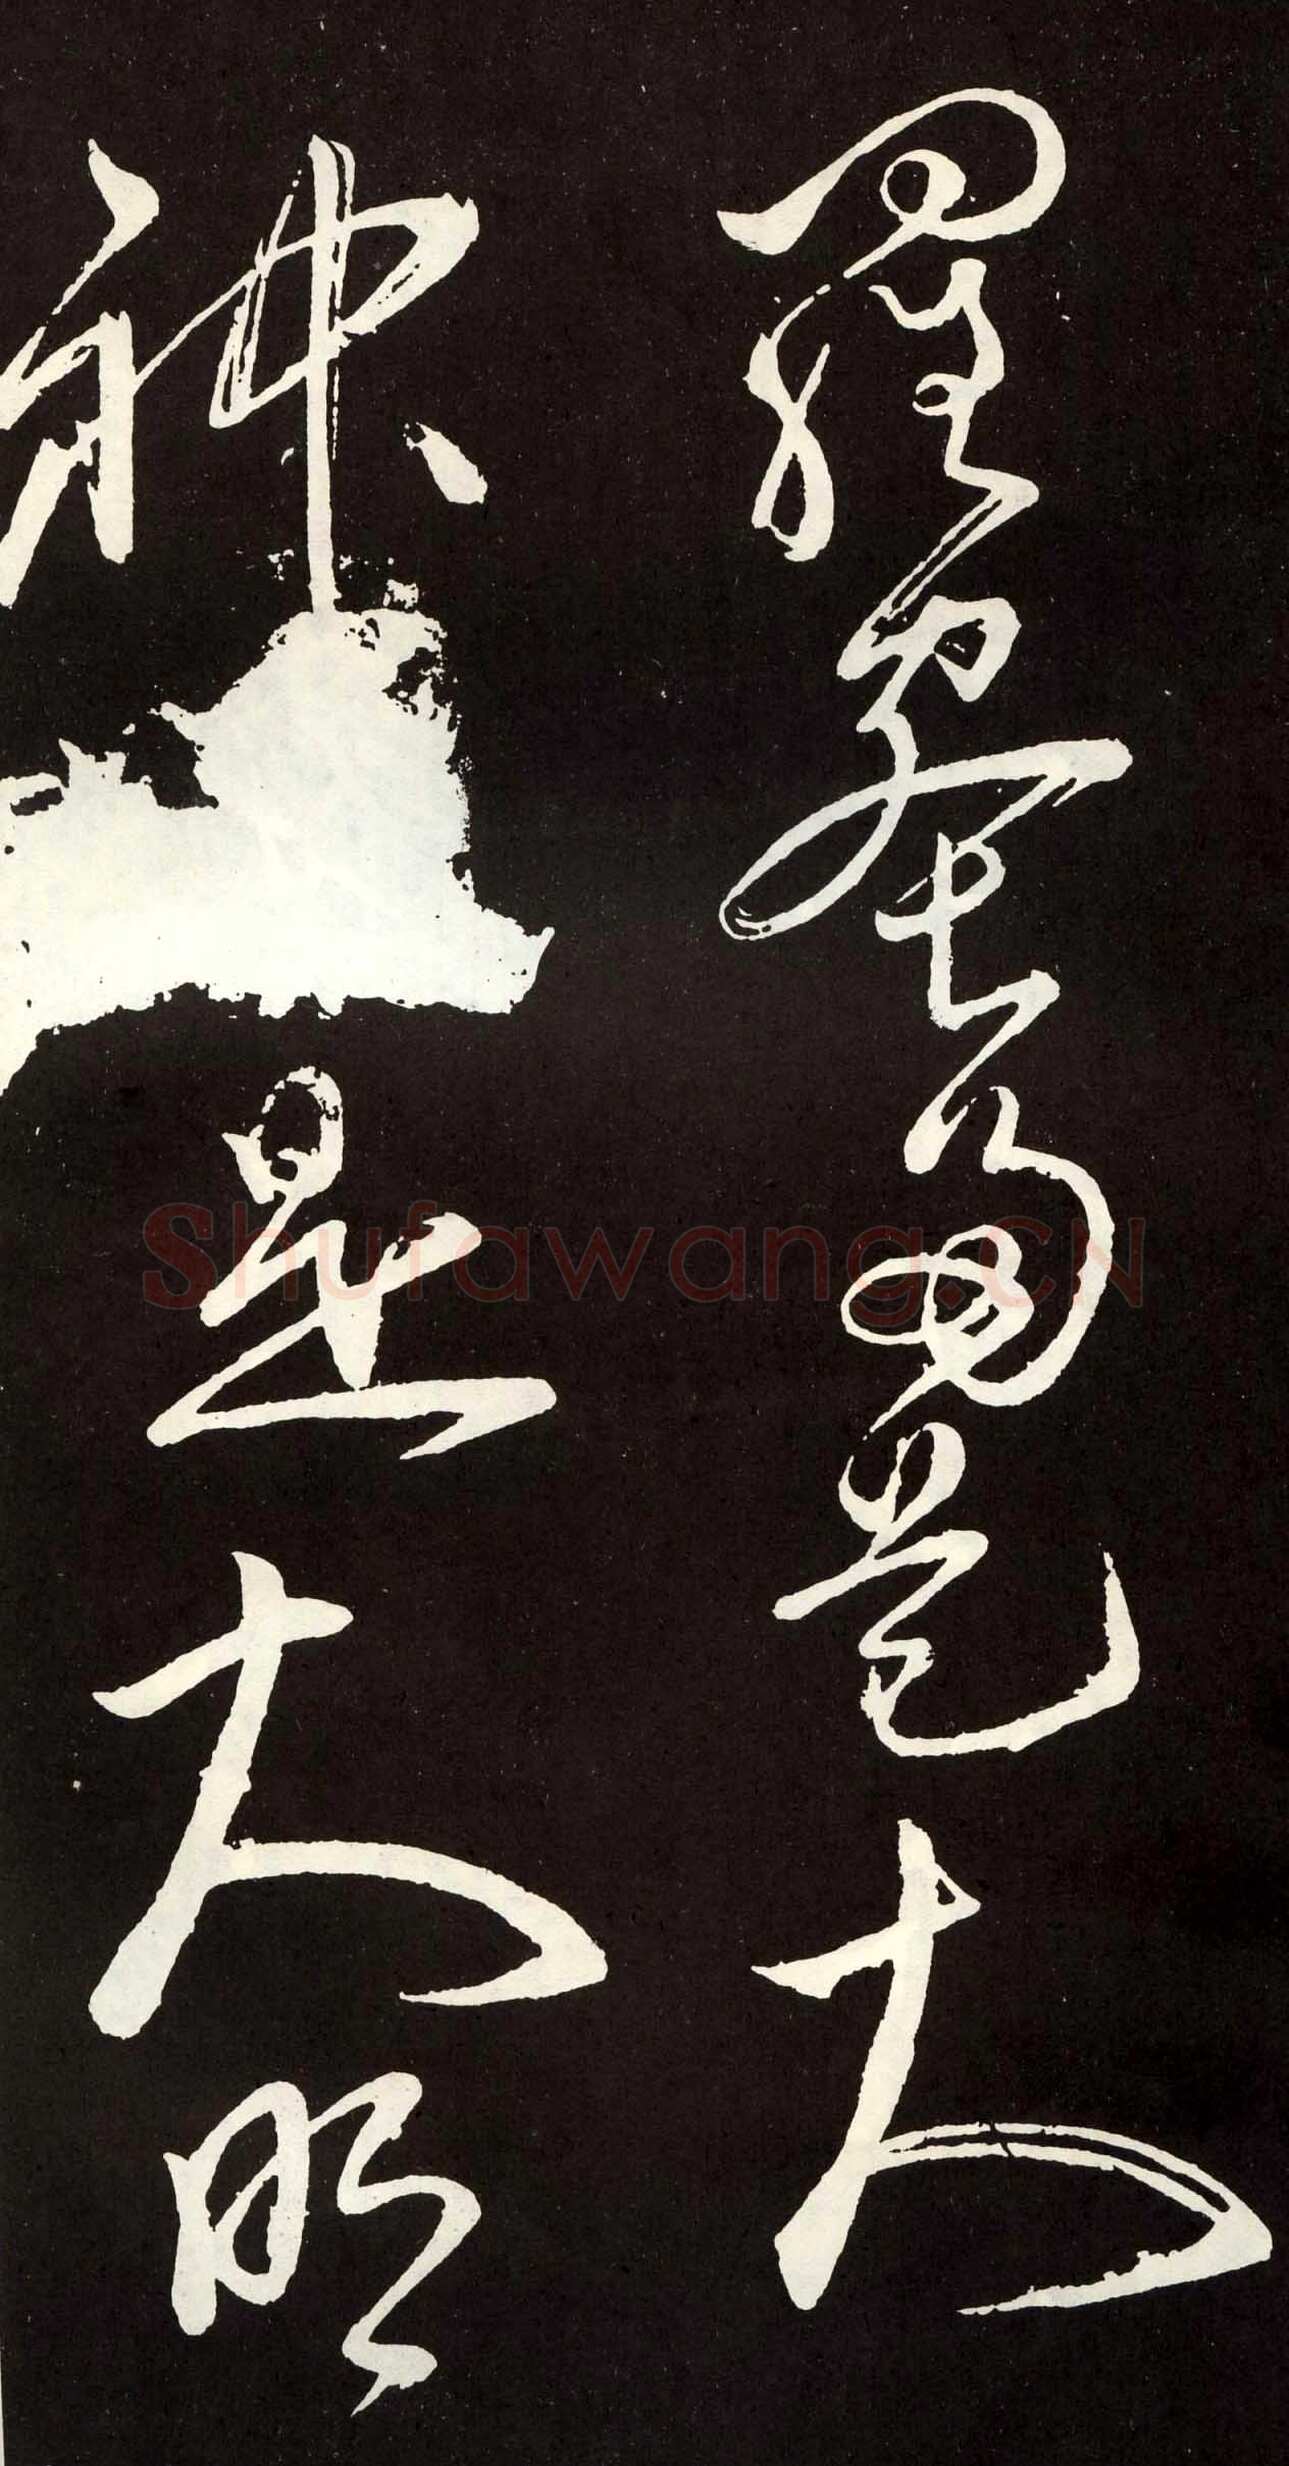 羅蜜多是大
神
是大明
Shufawang.CN